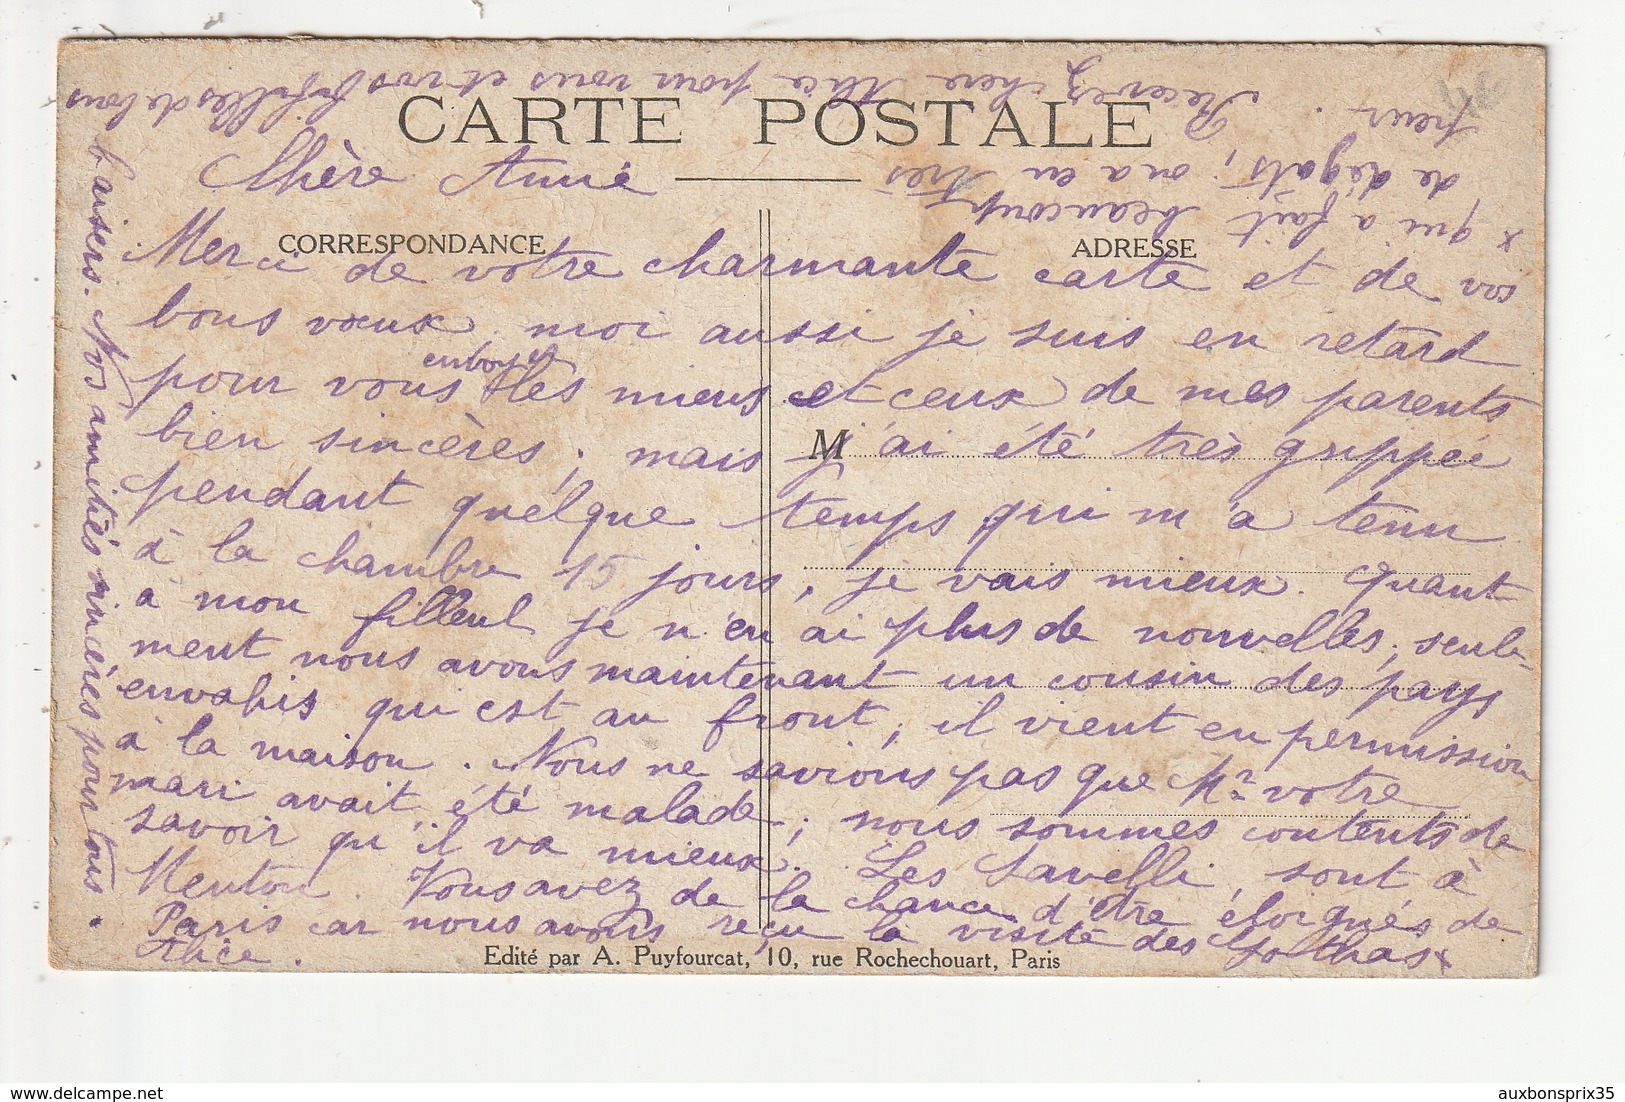 CARTE POSTALE
CORRESPONDANCE
ADRESSE
Chère Amie
Merci de votre charmante carte et de vos
bons vœux moi aussi je suis en retard
pour vous envoyer les miens et ceux de mes parents
bien sincères ; mais j'ai été très grippée
M
pendant quelque temps qui m'a tenu
à la chambre 15 jours, je vais mieux. Quant
à mon filleul je n'en ai plus de nouvelles, seule-
ment nous avons maintenant un cousin des pays
envahis qui est au front, il vient en permission
à la maison. Nous ne savions pas que Mr votre
mari avait été malade ; nous sommes contents de
savoir qu'il va mieux. Les Savelli, sont à
Menton. Vous avez de la chance d'être éloignés de
Paris car nous avons reçu la visite des Gothas x
x qui a fait beaucoup
de dégats ; on a eu très
peur.
Recevez chère Alice pour vous et vos filles de bons
baisers. Nos amitiés sincères pour tous.
Alice.
Edité par A. Puyfourcat, 10, rue Rochechouart, Paris
auxbonsprix35